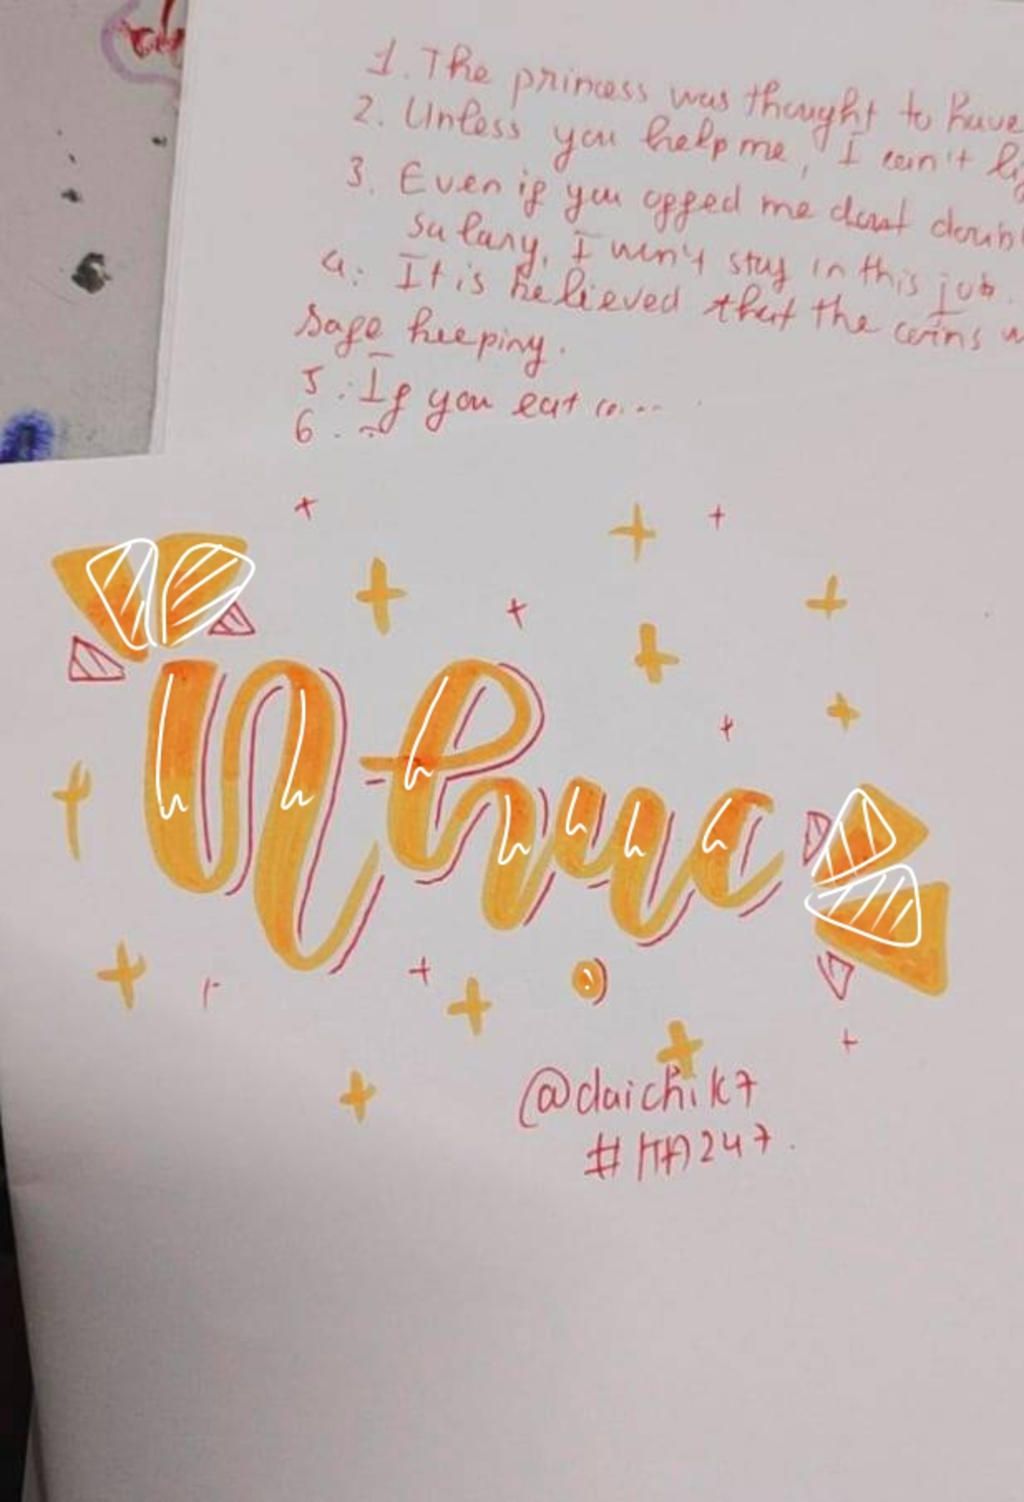 1. The princess was thought to have
2. Unless you help me, I can't
3. Even if you offed me doub
salary, I won't stay in this job.
4. It is believed that the coins w
safe keeping.
5. If you eat ...
6. ..
Nhục
@daichik7
#HA247.